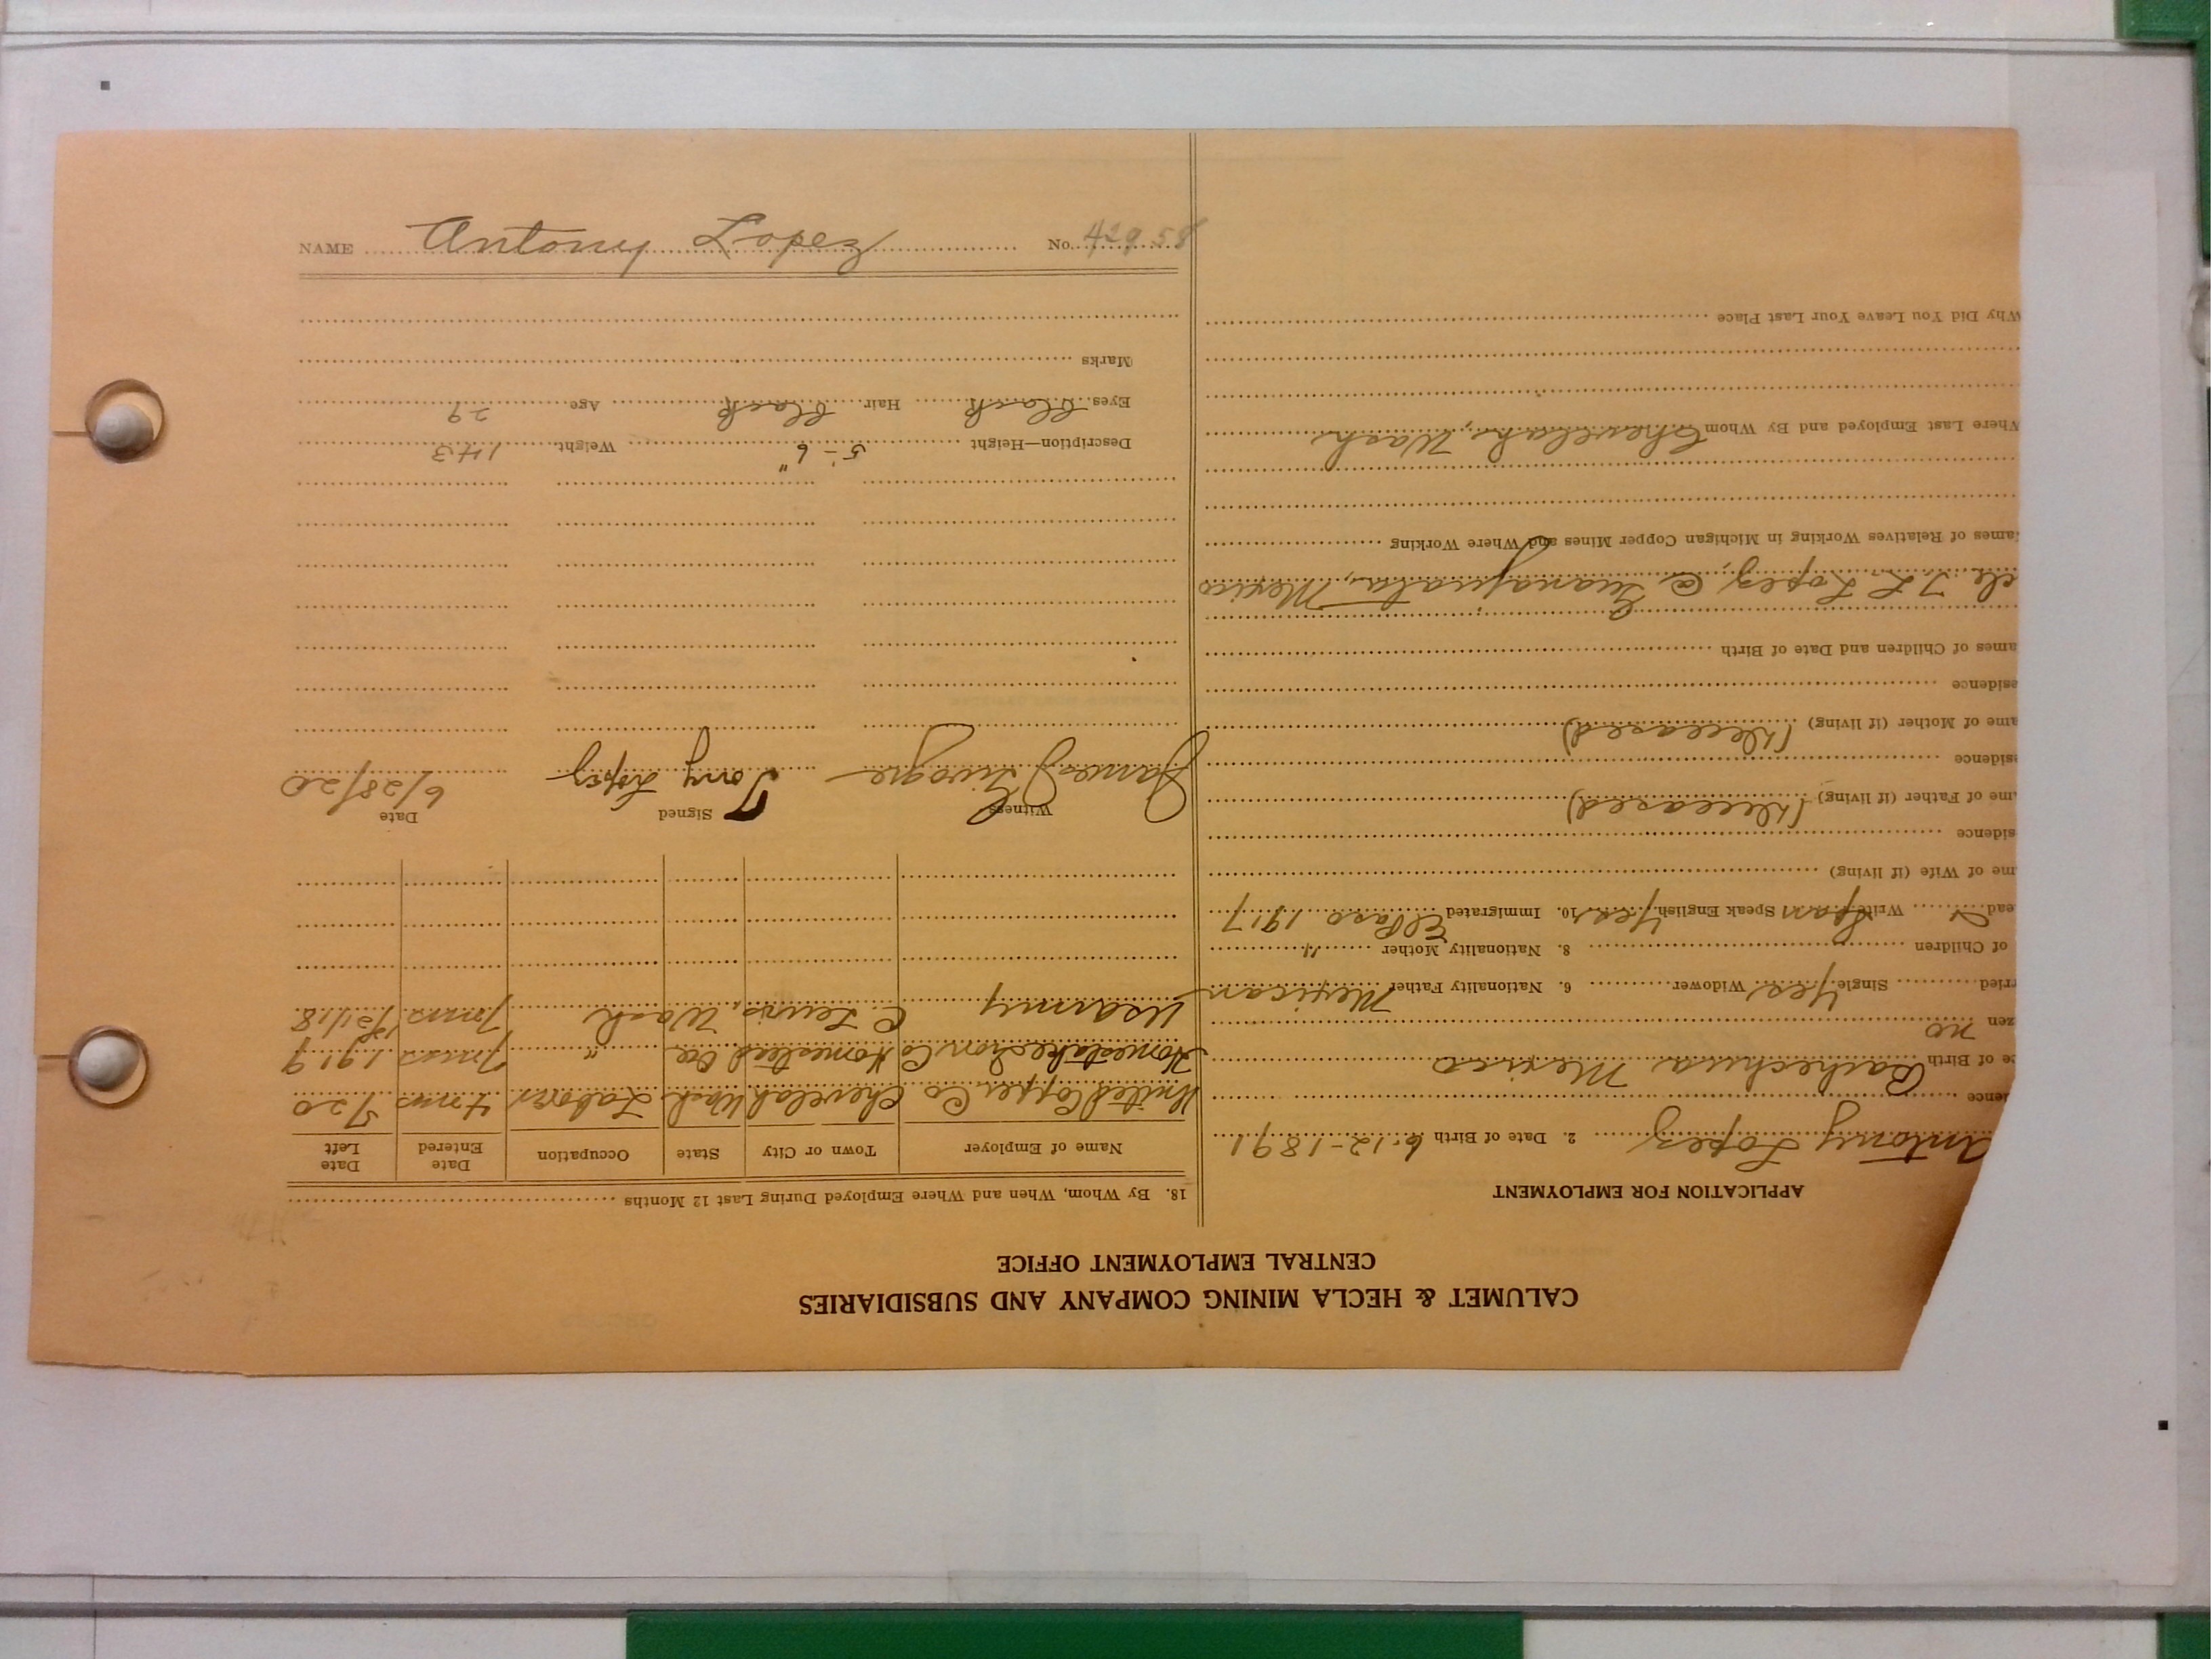 NAME Antony Lopez No. 42958
CALUMET & HECLA MINING COMPANY AND SUBSIDIARIES
CENTRAL EMPLOYMENT OFFICE
APPLICATION FOR EMPLOYMENT
Antony Lopez 2. Date of Birth 6-12-1891
dence
ce of Birth Pachechua Mexico
zen no
ried Single Yes Widower 6. Nationality Father Mexican
of Children 8. Nationality Mother "
ead Write Span Speak English Yes 10. Immigrated El Paso 1917
me of Wife (if living)
sidence
me of Father (if living) (Deceased)
sidence
me of Mother (if living) (Deceased)
esidence
ames of Children and Date of Birth
J. L. Lopez, @ Guanajuato, Mexico
ames of Relatives Working in Michigan Copper Mines and Where Working
Where Last Employed and By Whom Chewelah, Wash
Why Did You Leave Your Last Place
18. By Whom, When and Where Employed During Last 12 Months
Name of Employer Town or City State Occupation Date Entered Date Left
United Copper Co Chewelah Wash Laborer 4 mos 5/20
Homestake Iron Co Homestead Ore " 7 mos 1919
US army C. Lewis, Wash 7 mos
Witness Signed Date
James Tony Lopez 6/28/20
Description—Height 5-6" Weight 143
Eyes black Hair black Age 29
Marks